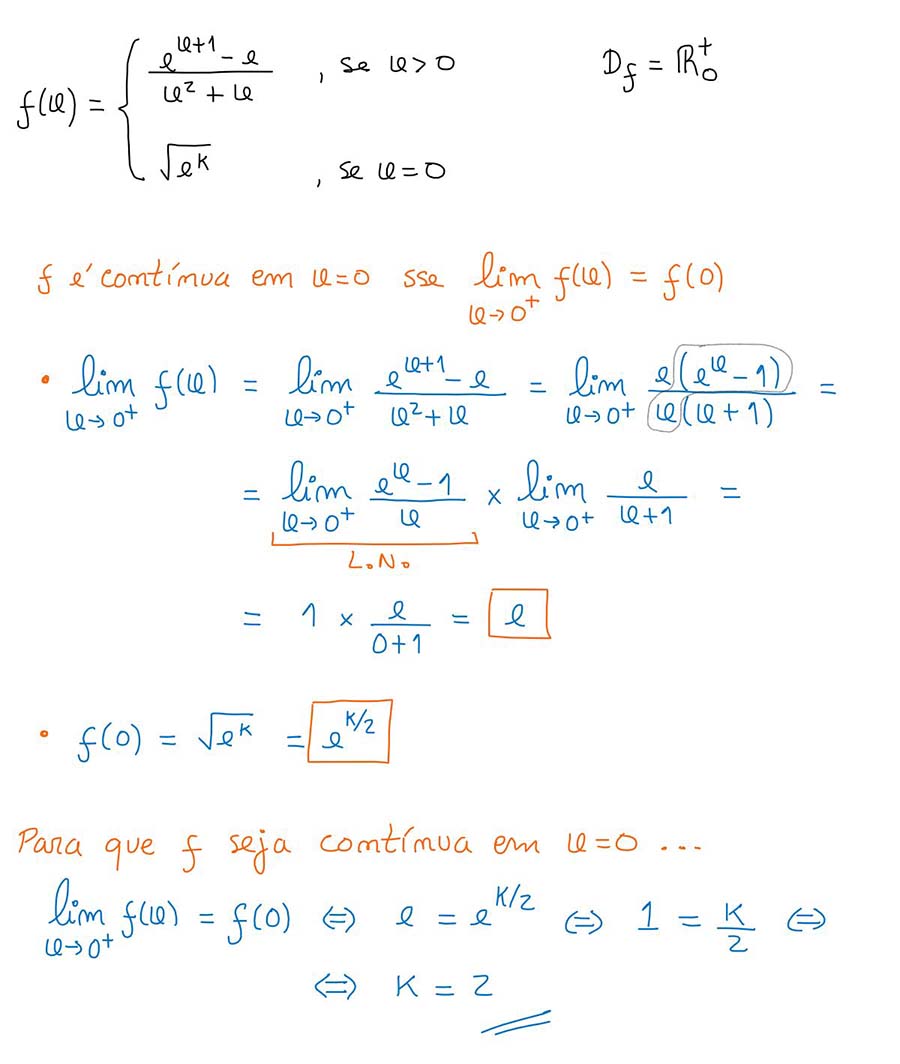 f(x) = { (e^(x+1) - e)/(x² + x) , se x>0
D_f = ℝ₀⁺
√(e^k) , se x=0
f é contínua em x=0 sse lim_(x→0⁺) f(x) = f(0)
• lim_(x→0⁺) f(x) = lim_(x→0⁺) (e^(x+1) - e)/(x² + x) = lim_(x→0⁺) (e(e^x - 1))/(x(x+1)) =
= lim_(x→0⁺) (e^x - 1)/x × lim_(x→0⁺) e/(x+1) =
L.N.
= 1 × e/(0+1) = e
• f(0) = √(e^k) = e^(k/2)
Para que f seja contínua em x=0 ...
lim_(x→0⁺) f(x) = f(0) ⇔ e = e^(k/2) ⇔ 1 = k/2 ⇔
⇔ k = 2